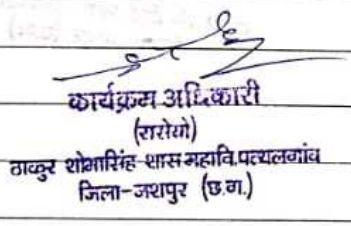 कार्यक्रम अधिकारी
(रासेयो)
ठाकुर शोभासिंह शास महावि. पत्थलगांव
जिला-जशपुर (छ.ग.)